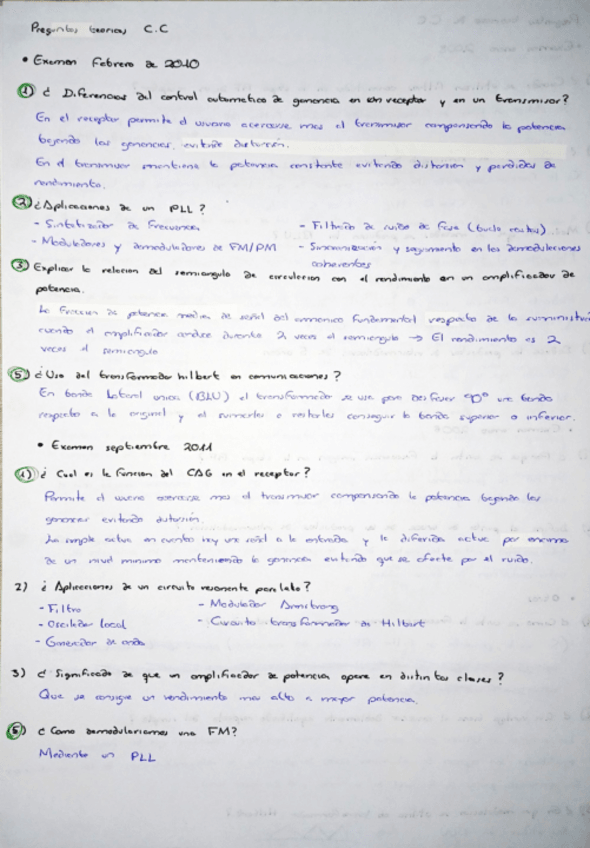 Preguntas teoricas C.C
• Examen Febrero de 2010
1) ¿ Diferencias del control automatico de ganancia en un receptor y en un transmisor?
En el receptor permite al usuario acercarse mas al transmisor compensando la potencia
bajando las ganancias, evitando distorsión.
En el transmisor mantiene la potencia constante evitando distorsión y perdidas de
rendimiento.
2) ¿Aplicaciones de un PLL?
- Sintetizador de Frecuencia
- Filtrado de ruido de fase (bucle )
- Moduladores y demoduladores de FM/PM
- Sincronización y seguimiento en las demodulaciones
coherentes
3) Explicar la relacion del semiangulo de circulacion con el rendimiento en un amplificador de
potencia.
La fraccion de potencia media de señal del armonico fundamental respecto de la suministra
cuando el amplificador conduce durante 2 veces el semiangulo → El rendimiento es 2
veces el semiangulo
5) ¿Uso del transformador hilbert en comunicaciones?
En banda lateral unica (BLU) el transformador se usa para desfasar 90° una banda
respecto a la original y al sumarlas o restarlas conseguir la banda superior o inferior.
• Examen septiembre 2011
1) ¿ Cual es la funcion del CAG en el receptor?
Permite al usuario acercarse mas al transmisor compensando la potencia bajando las
ganancias evitando distorsión.
La simple actua en cuanto hay una señal a la entrada y la diferida actua por encima
de un nivel minimo manteniendo la ganancia evitando que se afecte por el ruido.
2) ¿ Aplicaciones de un circuito resonante paralelo?
- Filtro
- Modulador Armstrong
- Oscilador local
- Circuito transformador de Hilbert
- Generador de onda
3) ¿ Significado de que un amplificador de potencia opere en distintas clases?
Que se consigue un rendimiento mas alto a mayor potencia.
5) ¿ Como demodulariamos una FM?
Mediante un PLL